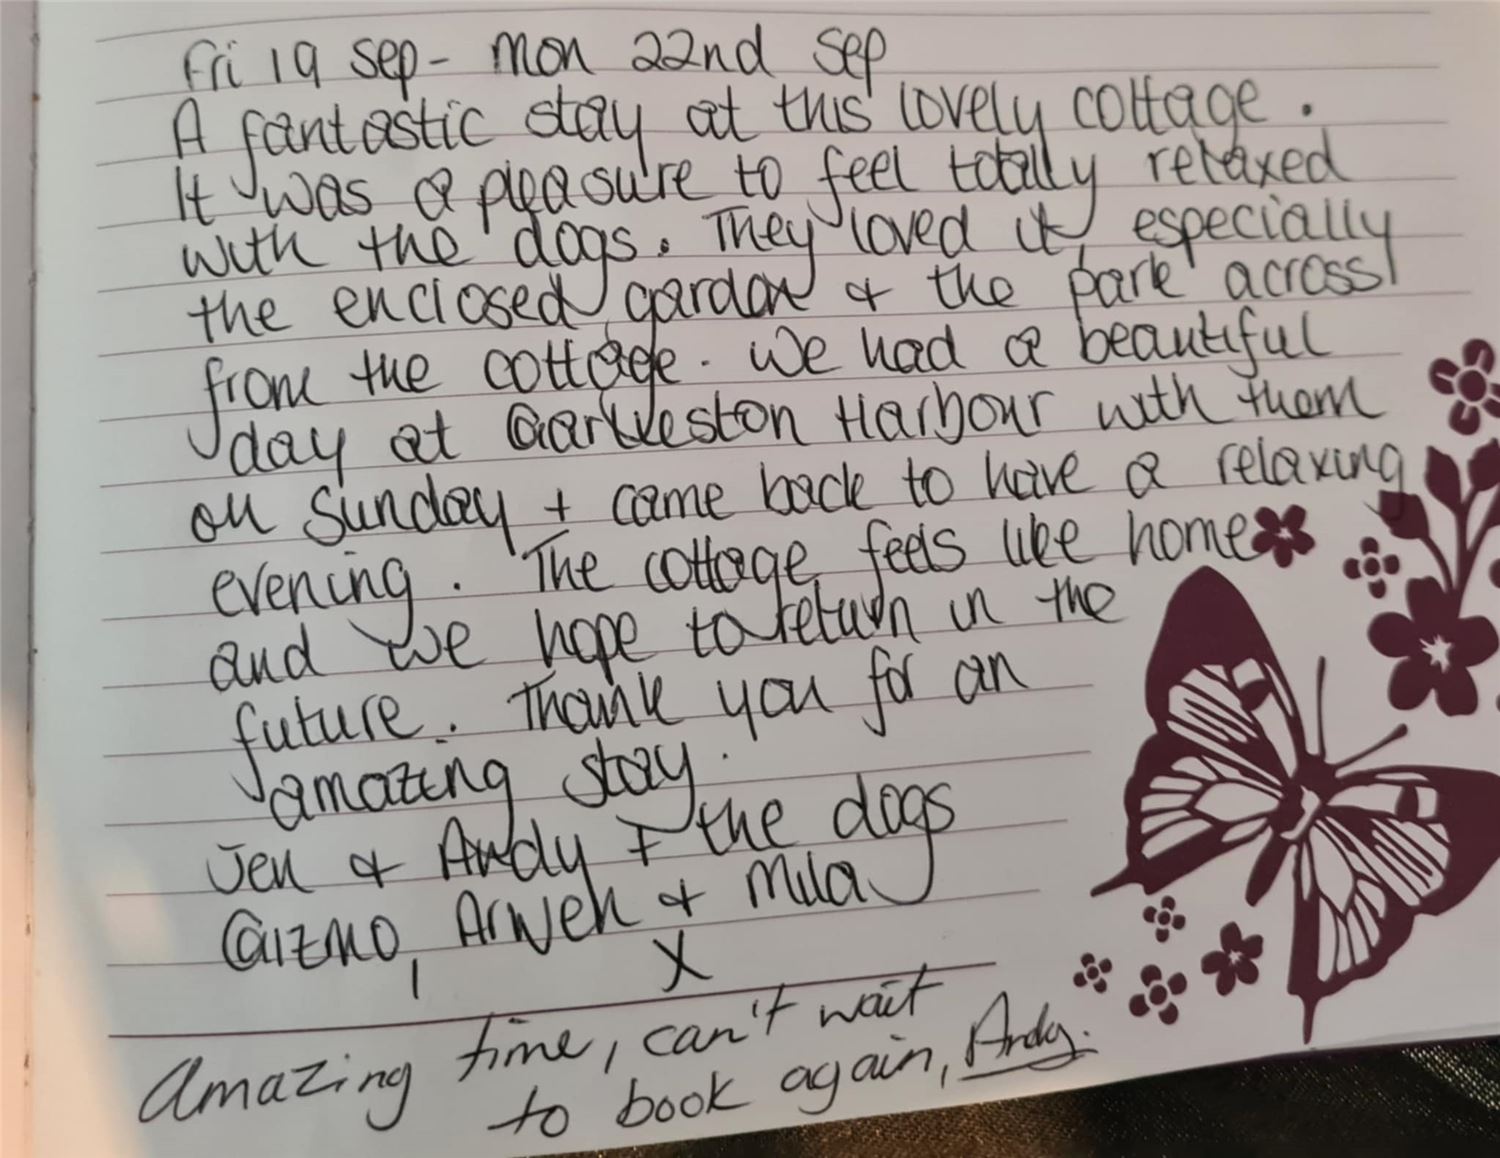 Fri 19 Sep - Mon 22nd Sep
A fantastic stay at this lovely cottage.
It was a pleasure to feel totally relaxed
with the dogs. They loved it, especially
the enclosed garden & the park across
from the cottage. We had a beautiful
day at Garlieston Harbour with them
on Sunday + came back to have a relaxing
evening. The cottage feels like home
and we hope to return in the
future. Thank you for an
amazing stay.
Jen & Andy + the dogs
Gizmo, Arwen & Mila
X
Amazing time, can't wait
to book again, Andy.